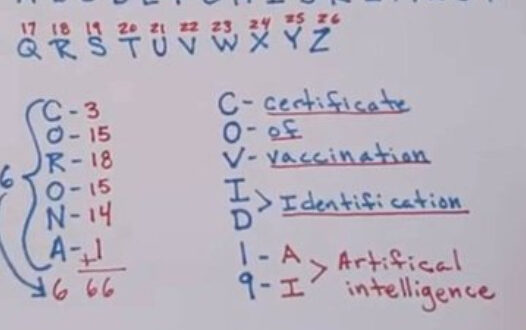 17 18 19 20 21 22 23 24 25 26
Q R S T U V W X Y Z
6
C - 3
O - 15
R - 18
O - 15
N - 14
A - +1
6 66
C - certificate
O - of
V - vaccination
I
D > Identification
1 - A
9 - I > Artifical
intelligence